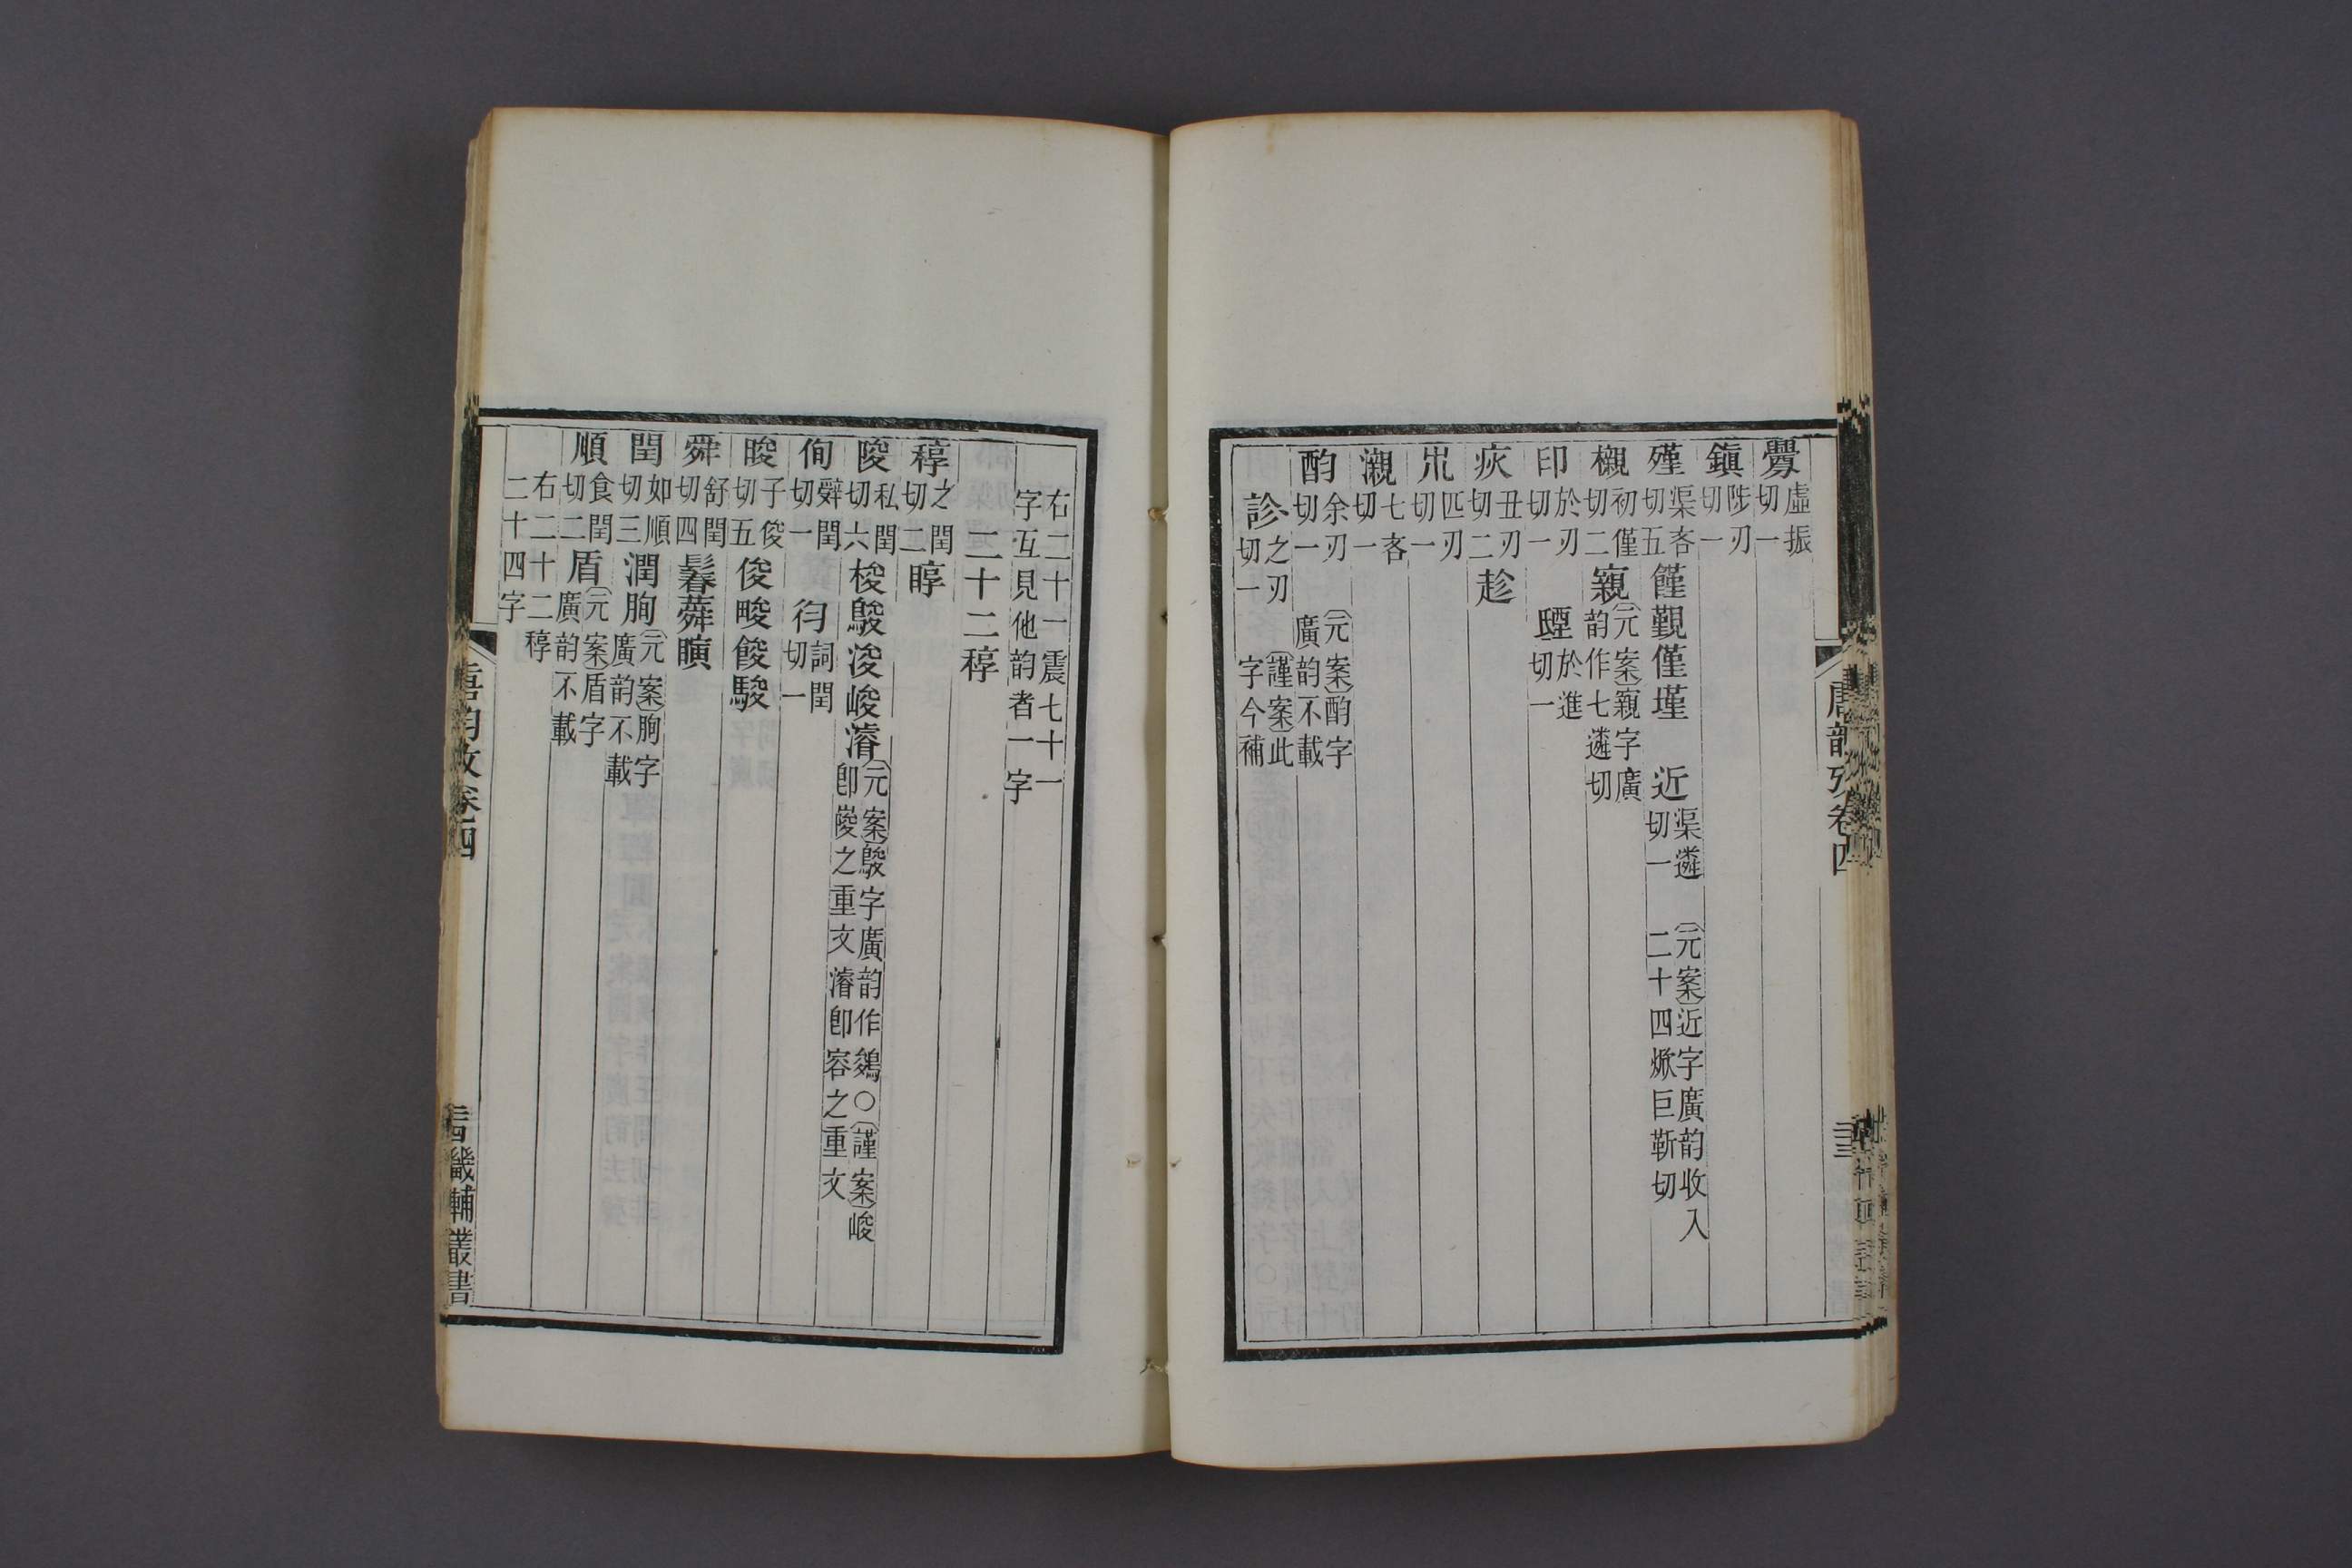 釁虛振切一
鎮陟刃切一
殣渠吝切五饉覲僅墐　近渠遴切一　元案近字廣韵收入二十四焮巨靳切
櫬初僅切二窺元案窺字廣韵作七遴切
印於刃切一　㙒於進切一
疢丑刃切二趁
𣎳匹刃切一
瀙七吝切一
酳余刃切一　元案酳字廣韵不載
診之刃切一　謹案此字今補
唐韵攷卷四
右二十一震七十一字互見他韵者一字
二十二稕
稕之閏切二諄
陖私閏切六梭鵔浚峻濬元案鵔字廣韵作鵕○謹案峻卽㕙之重文濬卽容之重文
侚辭閏切一　㣙詞閏切一
晙子俊切五俊畯餕駿
舜舒閏切四鬊蕣瞚
閏如順切三潤朐元案朐字廣韵不載
順食閏切二盾元案盾字廣韵不載
右二十二稕二十四字
唐韵攷卷四
畿輔叢書